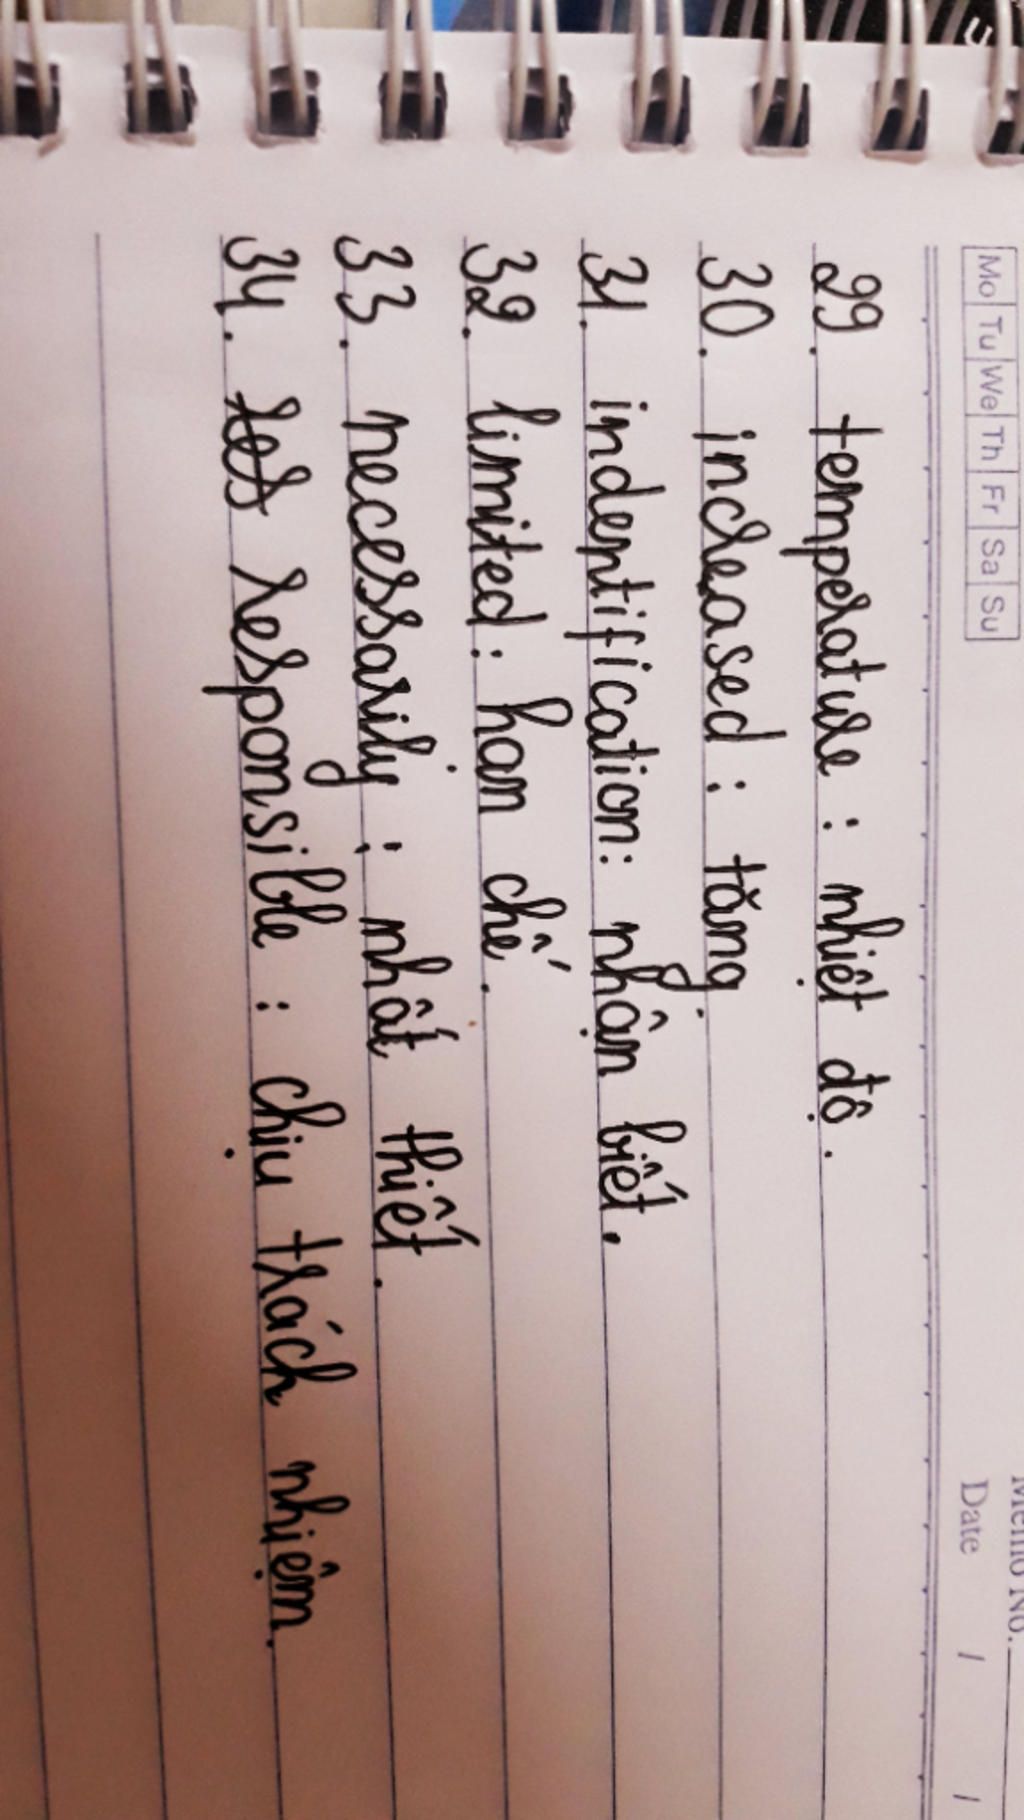 Mo Tu We Th Fr Sa Su
Memo No.
Date / /
29. temperature : nhiệt độ.
30. increased : tăng.
31. indentification: nhận biết.
32. limited : hạn chế.
33. necessarily : nhất thiết.
34. responsible : chịu trách nhiệm.